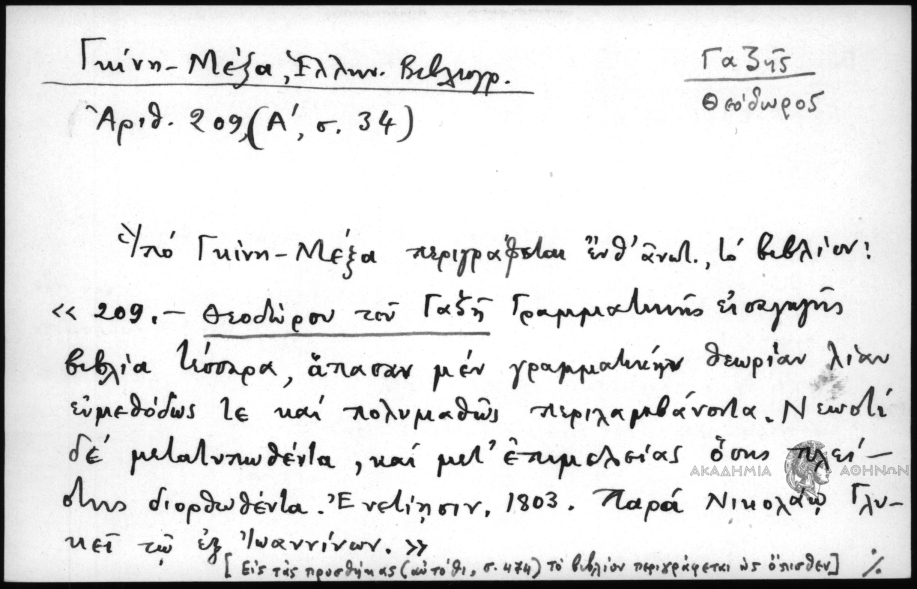 Γκίνη-Μέξα, Ἑλλην. Βιβλιογρ.
Ἀριθ. 209, (Α', σ. 34)
Γαζῆς
Θεόδωρος
Ὑπό Γκίνη-Μέξα περιγράφεται ἔνθ' ἀνωτ., τό βιβλίον:
« 209. — Θεοδώρου τοῦ Γαζῆ Γραμματικῆς εἰσαγωγῆς
βιβλία τέσσαρα, ἅπασαν μέν γραμματικήν θεωρίαν λίαν
εὐμεθόδως τε καί πολυμαθῶς περιλαμβάνοντα. Νεωστί
δέ μετατυπωθέντα, καί μετ' ἐπιμελείας ὅσης πλεί-
στης διορθωθέντα. Ἐνετίησιν, 1803. Παρά Νικολάῳ Γλυ-
κεῖ τῷ ἐξ Ἰωαννίνων. »
[Εἰς τάς προσθήκας (αὐτόθι, σ. 474) τό βιβλίον περιγράφεται ὡς ὄπισθεν] ./.
ΑΚΑΔΗΜΙΑ ΑΘΗΝΩΝ